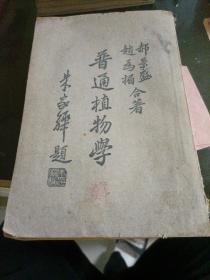 郝景盛
趙為楣 合著
普通植物學
朱家驊題